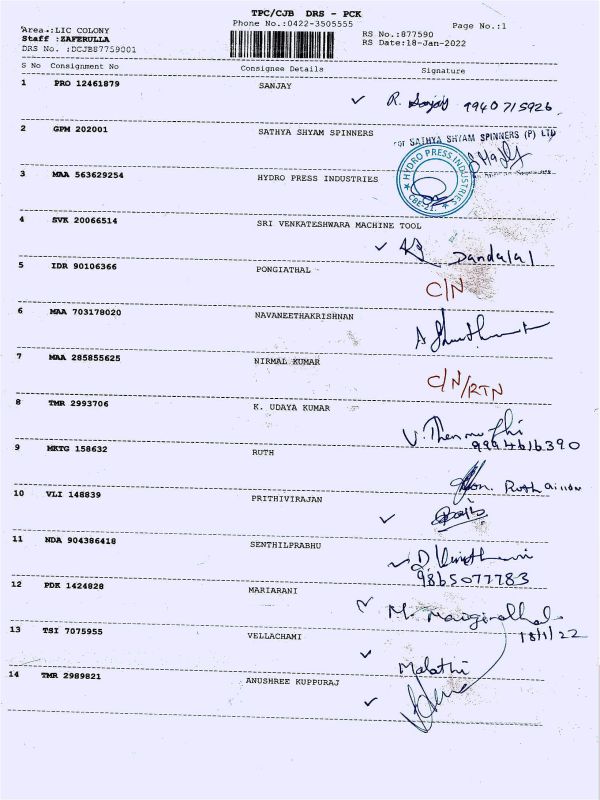 TPC/CJB DRS - PCK
Area.:LIC COLONY Phone No.:0422-3505555 Page No.:1
Staff :ZAFERULLA RS No.:877590
DRS No. :DCJB87759001 RS Date:18-Jan-2022
S No Consignment No Consignee Details Signature
1 PRO 12461879 SANJAY
R. Sanjay 9940715926
2 GPM 202001 SATHYA SHYAM SPINNERS
For SATHYA SHYAM SPINNERS (P) LTD
3 MAA 563629254 HYDRO PRESS INDUSTRIES
HYDRO PRESS INDUSTRIES
CBE-21.
4 SVK 20066514 SRI VENKATESHWARA MACHINE TOOL
Dandalal
5 IDR 90106366 PONGIATHAL
C/N
6 MAA 703178020 NAVANEETHAKRISHNAN
7 MAA 285855625 NIRMAL KUMAR
C/N/RTN
8 TMR 2993706 K. UDAYA KUMAR
9994616390
9 MKTG 158632 RUTH
10 VLI 148839 PRITHIVIRAJAN
11 NDA 904386418 SENTHILPRABHU
9865077783
12 PDK 1424828 MARIARANI
18/1/22
13 TSI 7075955 VELLACHAMI
Malathi
14 TMR 2989821 ANUSHREE KUPPURAJ